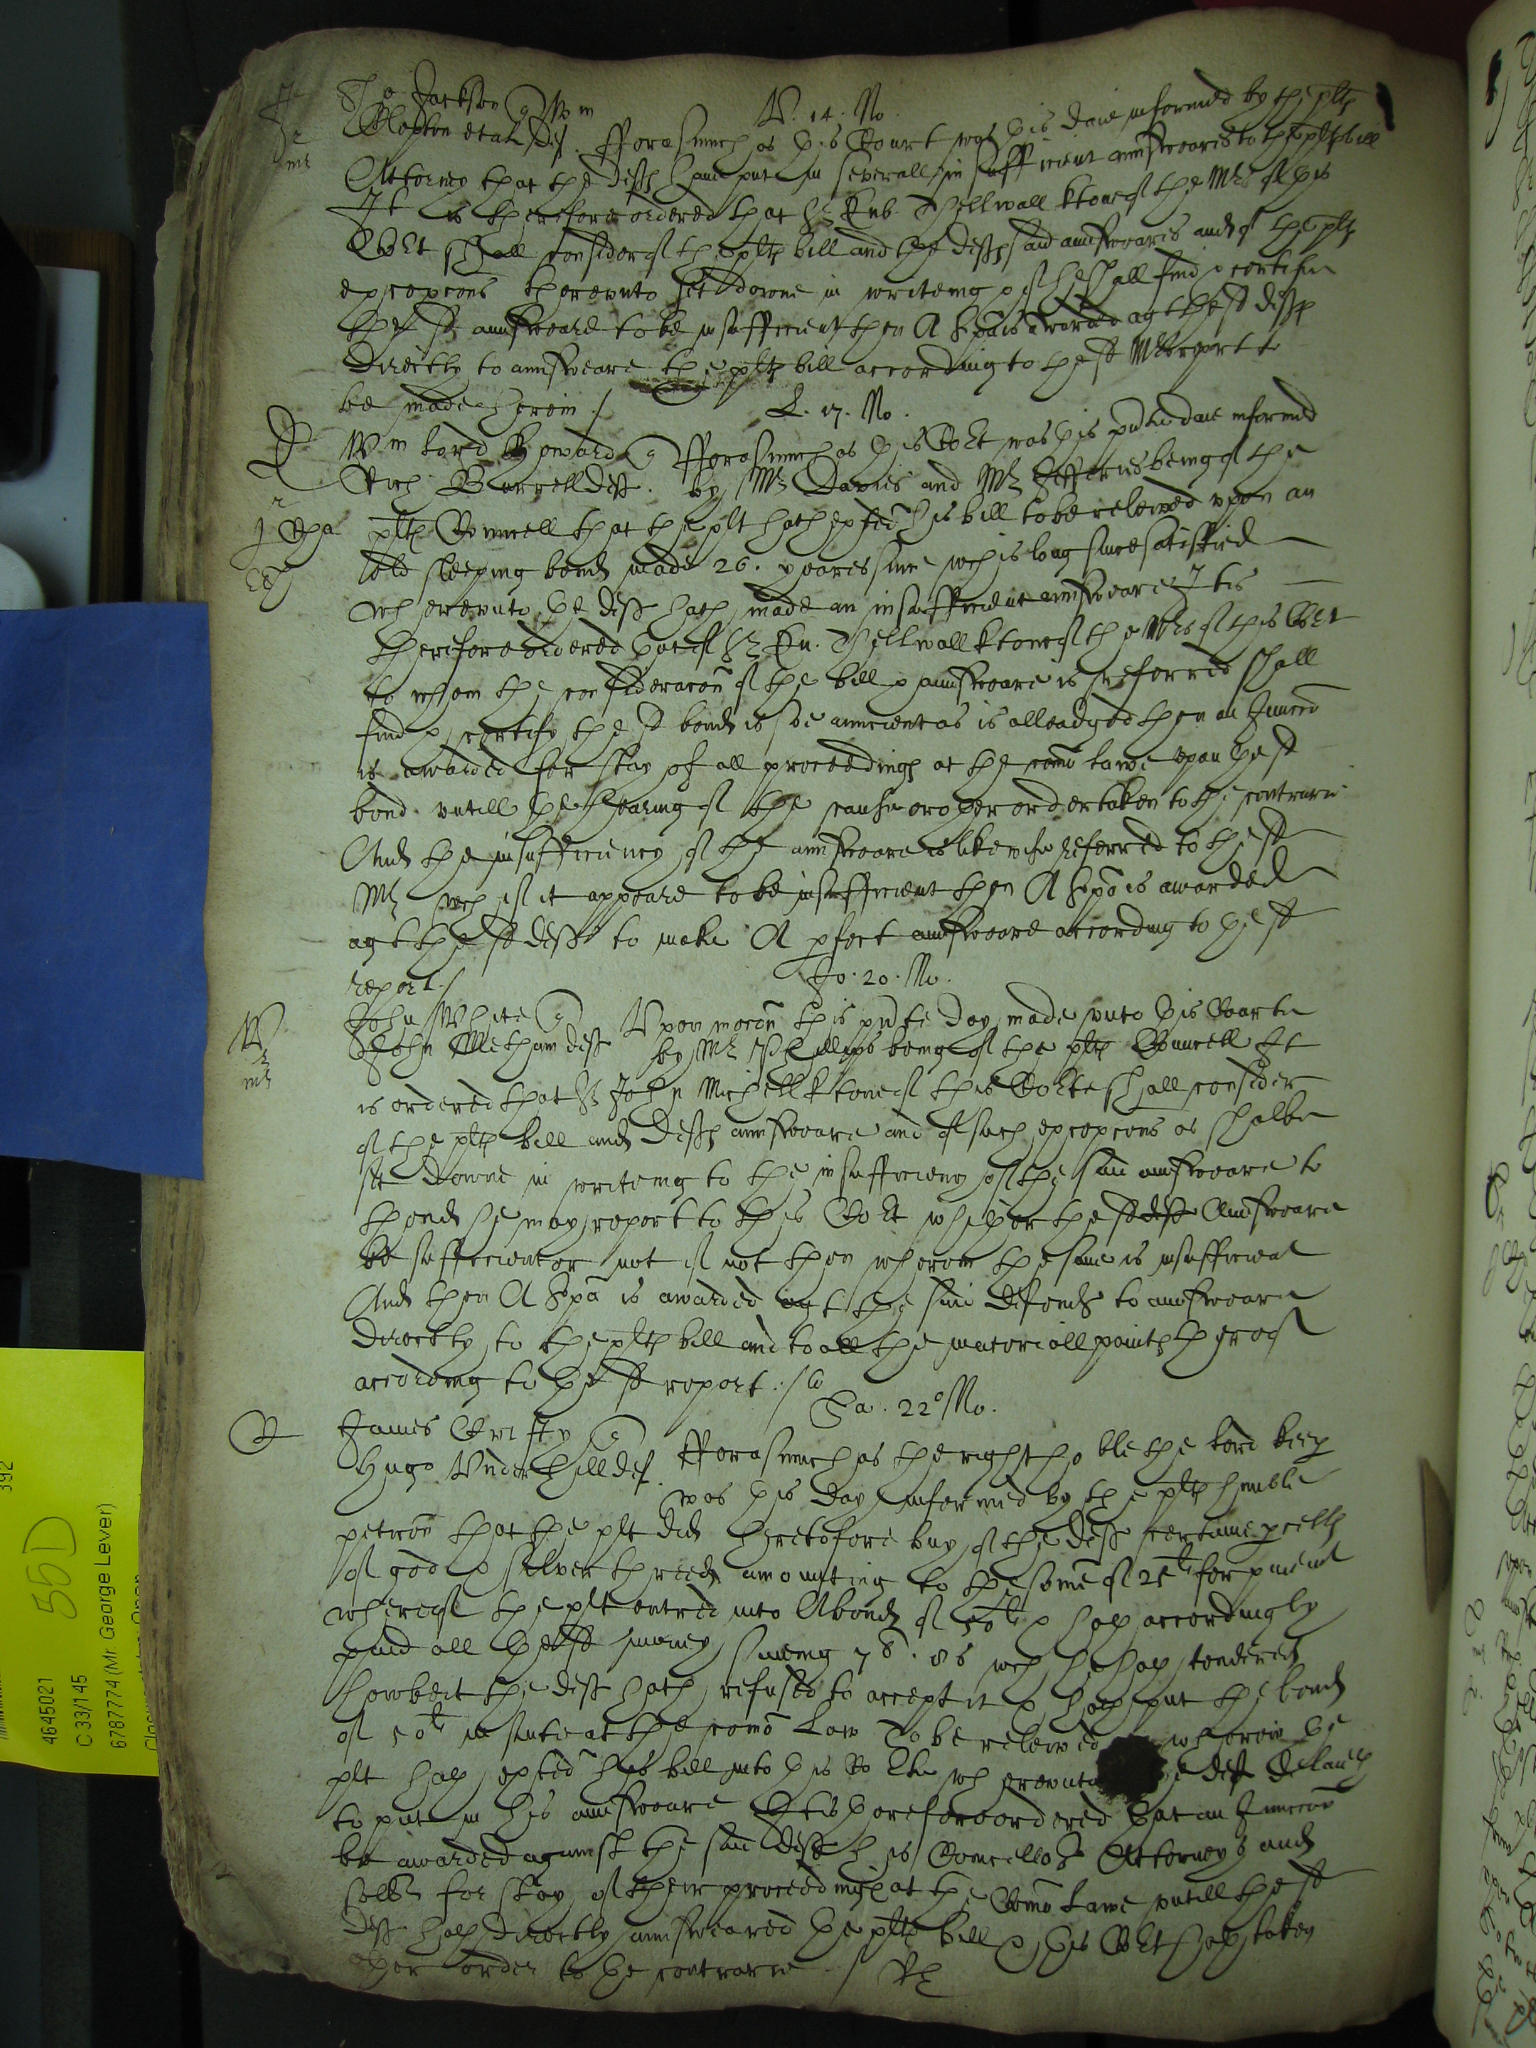 Tho Jackson q Wm
V. 14. No.
Clopton et al deft. Fforasmuch as this Court was this daie informed by the plts
Attorney that the defts have put in severall insufficient annsweares to the plts bill
It is therefore ordered that Sr Eub. Thellwall kt one of the Mrs of this
Cort shall consider of the plts bill and the defts said annsweares and of the plts
excepcons therevnto sett downe in writeing & if he shall find & certifie
the sd annsweare to be insufficient then A Spa is awarded agt the sd defts
directly to annsweare the plts bill according to the sd Mrs report to
be made herein ./
L. 17. No.
Wm Lord Howard q Fforasmuch as this Cort was this pnte daie informed
Rich Burrell deft. by Mr Davies and Mr Jefferies being of the
plts Councell that the plt hath exhted his bill to be releived vpon an
old sleeping bond made 26. yeares since wch is long since satisfied
wherevnto the deft hath made an insufficient annsweare It is
therefore ordered that if Sr Eu. Thellwall kt one of the Mrs of this Cort
to whom the consideracon of the bill & annsweare is referred shall
find & certify the sd bond is soe auncient as is alleadged then an Iniunccon
is awarded for stay of all proceedings at the comon lawe vpon the sd
bond vntill the hearing of the cause or other order taken to the contrarie
And the insufficiency of the annsweare is likewise referred to the sd
Mr wch if it appeare to be insufficient then A Spa is awarded
agt the sd deft to make A pfect annsweare according to the sd
report ./
Jo. 20. No.
John White q Vpon mocon this pnte day made vnto this Courte
John Metham deft by Mr Phillips being of the plts Councell It
is ordered that Sr John Michell kt one of this Corte shall consider
of the plts bill and defts annsweare and of such excepcons as shalbe
sett downe in writeing to the insufficiency of the said annsweare to
thend he may report to this Cort whether the sd deft Annsweare
be sufficient or not if not then wherein the same is insufficient
And then A Spa is awarded agt the said defendt to annsweare
directly to the plts bill and to all the materiall points thereof
according to the sd report ./
Sa. 22o No.
James Cristy q
Hugo Vnderhill deft. Fforasmuch as the right hoble the lord keep
was this day informed by the plts humble
peticon that the plt did heretofore buy of the deft certaine pcells
of gold & silver threed amounting to the some of 25l for paiemt
whereof the plt entred into A bond of 50l & hath accordingly
paid all the sd money saueing 7s. 8d wch he hath tendered
howbeit the deft hath refused to accept it & hath put the bond
of 50l in suite at the comon law To be releived wherein the
plt hath exhted his bill into this Corte wherevnto the deft delaieth
to put in his annsweare It is therefore ordered that an Iniunccon
be awarded against the said deft his Councellors Attorneys and
sollrs for stay of their proceedings at the Comon Lawe vntill the sd
deft hath directly annsweared the plts bill & this Cort hath taken
other order to the contrarie ./
55D
392
4645021
C 33/145
6787774 (Mr. George Lever)